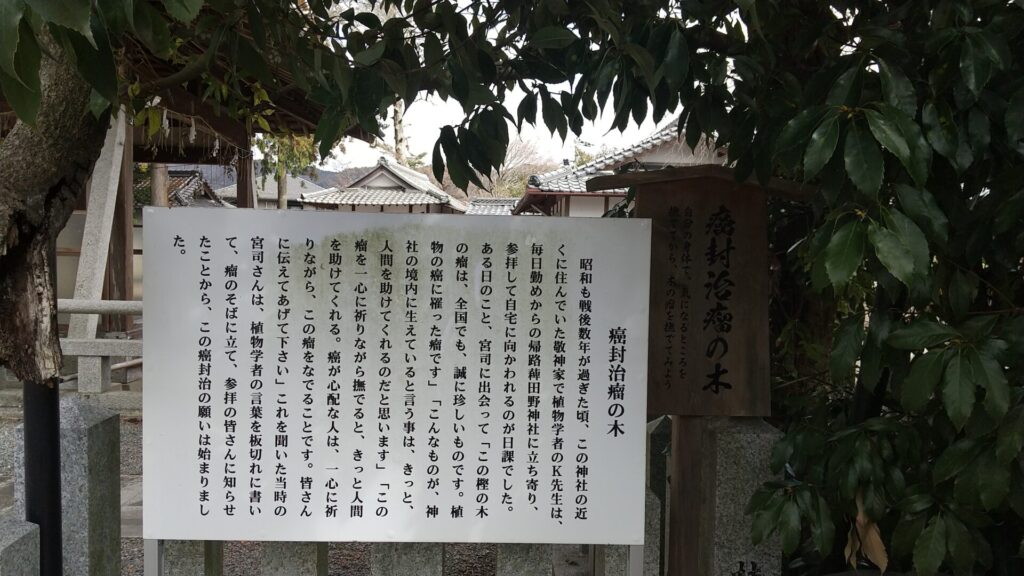 癌封治瘤の木
昭和も戦後数年が過ぎた頃、この神社の近
くに住んでいた敬神家で植物学者のK先生は、
毎日勤めからの帰路薭田野神社に立ち寄り、
参拝して自宅に向かわれるのが日課でした。
ある日のこと、宮司に出会って「この樫の木
の瘤は、全国でも、誠に珍しいものです。植
物の癌に罹った瘤です」「こんなものが、神
社の境内に生えていると言う事は、きっと、
人間を助けてくれるのだと思います」「この
瘤を一心に祈りながら撫でると、きっと人間
を助けてくれる。癌が心配な人は、一心に祈
りながら、この瘤をなでることです。皆さん
に伝えてあげて下さい」これを聞いた当時の
宮司さんは、植物学者の言葉を板切れに書い
て、瘤のそばに立て、参拝の皆さんに知らせ
たことから、この癌封治の願いは始まりまし
た。
癌封治瘤の木
自分の身体で、気になるところを
撫でてから、木の瘤を撫でてみよう